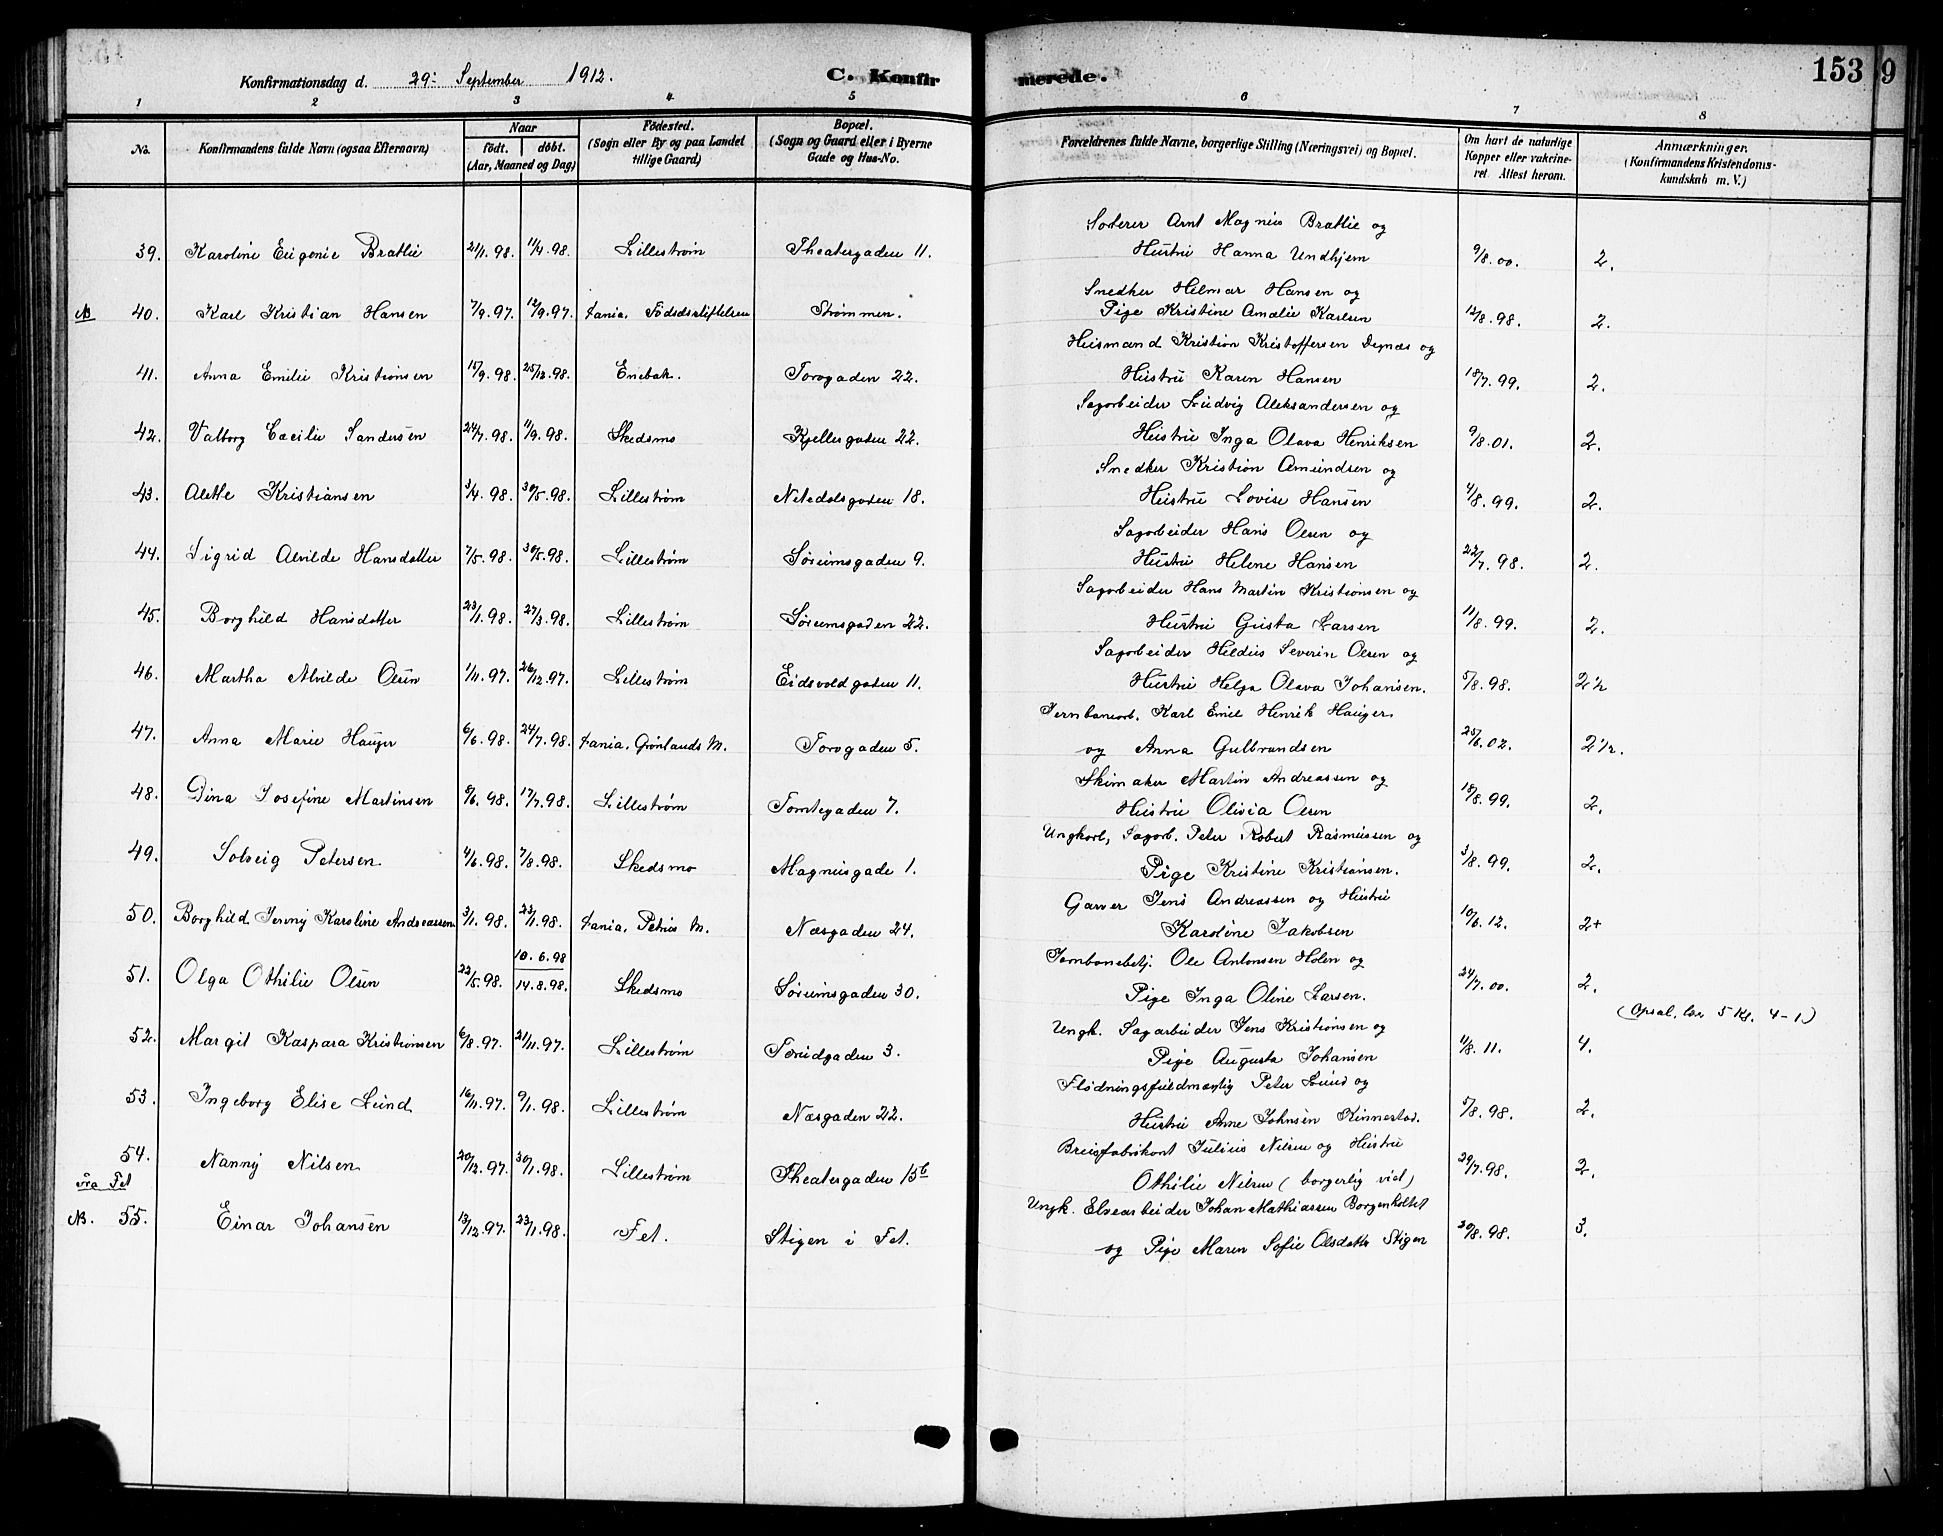 153 9
Konfirmationsdag d. 29. September 1912. C. Konfirmerede.
1 2 3 4 5 6 7 8
No. Konfirmandens fulde Navn (ogsaa Efternavn) Naar födt. döbt. (Aar, Maaned og Dag) Födested. (Sogn eller By og paa Landet tillige Gaard) Bopæl. (Sogn og Gaard eller i Byerne Gade og Hus-No. Forældrenes fulde Navne, borgerlige Stilling (Næringsvei) og Bopæl. Om havt de naturlige Kopper eller vakcineret Attest herom. Anmærkninger. (Konfirmandens Kristendomskundskab m. V.)
Sorterer Arnt Magnus Brattlie og
39. Karoline Eugenie Brattlie 21/1.98. 11/4.98. Lillestrøm Theatergaden 11. Hustru Hanna Undhjem 9/8.00. 2.
Snedker Helmar Hansen og
N 40. Karl Kristian Hansen 7/9.97. 12/9.97. Kania. Födselsstiftelsen Strømmen. Pige Kristine Amalie Karlsen 12/8.98. 2.
Husmand Kristian Kristoffersen Degnæs og
41. Anna Emilie Kristiansen 15/9.98. 25/12.98. Enebak. Torvgaden 22. Hustru Karen Hansen 18/7.99. 2.
Sagarbeider Ludvig Aleksandersen og
42. Valborg Cecilie Sandersen 24/7.98. 11/9.98. Skedsmo Kjellergaden 22. Hustru Inga Olava Henriksen 9/8.01. 2.
Snedker Kristian Amundsen og
43. Alette Kristiansen 3/4.98. 30/5.98. Lillestrøm Nitedalsgaden 18. Hustru Lovise Hansen 4/8.99. 2.
Sagarbeider Hans Olsen og
44. Sigrid Alvilde Hansdatter 7/5.98. 30/5.98. Lillestrøm Sørumsgaden 9. Hustru Helene Hansen 22/7.98. 2.
Sagarbeider Hans Martin Kristiansen og
45. Borghild Hansdatter 23/1.98. 27/3.98. Lillestrøm Sørumsgaden 22. Hustru Gusta Larsen 11/8.99. 2.
Sagarbeider Hildus Severin Olsen og
46. Martha Alvilde Olsen 1/11.97. 26/12.97. Lillestrøm Eidsvoldgaden 11. Hustru Helga Olava Johansen. 5/8.98. 2½
Jernbanearb. Karl Emil Henrik Hauger
47. Anna Marie Hauger 6/6.98. 24/7.98. Kania. Grönlands M. Torvgaden 5. og Anna Gulbrandsen 25/6.02. 2½.
Skomaker Martin Andreassen og
48. Dina Josefine Martinsen 8/6.98. 17/7.98. Lillestrøm Tomtegaden 7. Hustru Olivia Olsen 12/8.99. 2.
Ungkarl, Sagarb. Peter Robert Rasmussen og
49. Solveig Petersen 4/6.98. 7/8.98. Skedsmo Magnusgade 1. Pige Kristine Kristiansen. 3/8.99. 2.
Garver Jens Andreassen og Hustru
50. Borghild Jenny Karoline Andreassen 3/1.98. 23/1.98. Kania. Petrus M. Næsgaden 24. Karoline Jakobsen 10/6.12. 2+
Jernbanebetj. Ole Antonsen Holen og
51. Olga Othilie Olsen 22/5.98. 10.6.98 14.8.98. Skedsmo Sørumsgaden 30. Pige Inga Oline Larsen. 24/7.00. 2.
Ungk. Sagarbeider Jens Kristiansen og (Opsal. 5 Kl. 4-1.)
52. Margit Kaspara Kristiansen 6/8.97. 21/11.97. Lillestrøm Torudgaden 3. Pige Augusta Johansen 11/8.11. 4.
Flødningsfuldmægtig Peter Lund og
53. Ingeborg Elise Lund 16/11.97. 9/1.98. Lillestrøm Næsgaden 22. Hustru Anne Johnsen Kinnestad. 5/8.98. 2.
Brusfabrikant Julius Nilsen og Hustru
54. Nanny Nilsen 20/12.97. 30/1.98. Lillestrøm Theatergaden 15b Othilie Nilsen (borgerlig vid) 29/7.98. 2.
fra Fet Ungk. Elvearbeider Johan Mathiassen Borgenholtet
N. 55. Einar Johansen 13/12.97. 23/1.98. Fet. Stigen i Fet. og Pige Maren Sofie Olsdatter Stigen 30/8.98. 3.